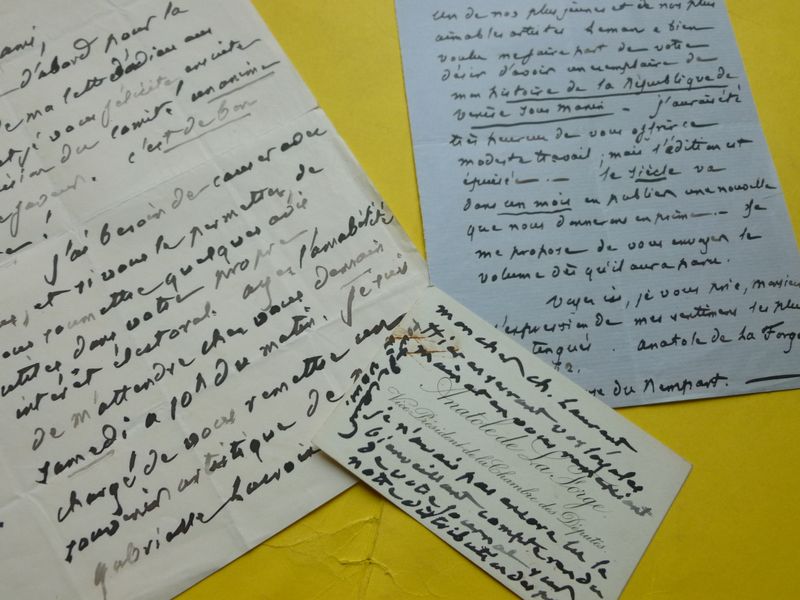 d'abord pour la
de ma lettre d'adieu aux
et je vous félicite ensuite
du comité unanime
faveur. c'est de bon
!
J'ai besoin de causer avec
vous, et si vous le permettez, de
vous soumettre quelques avis
utiles dans votre propre
intérêt électoral. ayez l'amabilité
de m'attendre chez vous demain
samedi a 10h du matin. Je suis
chargé de vous remettre un
souvenir artistique de
gabrielle
un de nos plus jeunes et de nos plus
aimables artistes Leman a bien
voulu me faire part de votre
désir d'avoir un exemplaire de
mon histoire de la République de
Venise sous Manin - J'aurais été
très heureux de vous offrir ce
modeste travail; mais l'édition est
épuisée. - Le Siècle va
dans un mois en publier une nouvelle
que nous donnerons en prime. - Je
me propose de vous envoyer le
volume dès qu'il aura paru.
Voyez ici, je vous prie, monsieur
l'expression de mes sentimens les plus
distingués. anatole de La Forge
du Rempart.
mon cher Ch. Laurent
Hier en serrant vos loyales
mains et en vous remerciant
Anatole de La Forge
Vice-Président de la Chambre des Députés
je n'avais pas encore lu le
bienveillant compte rendu
de votre journal sur
notre distribution des